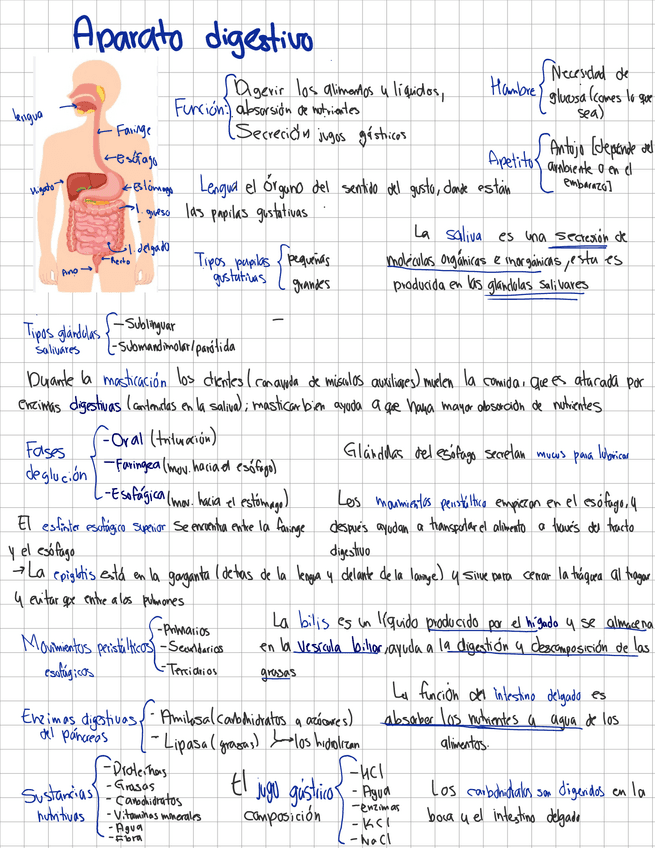 Aparato digestivo
lengua
Faringe
esófago
hígado
estómago
I. grueso
I. delgado
Recto
Ano
Función:
Digerir los alimentos y líquidos,
absorsión de nutrientes
Secreción jugos gástricos
Hambre
Necesidad de
glucosa (comes lo que
sea)
Apetito
Antojo [depende del
ambiente o en el
embarazo]
Lengua el órgano del sentido del gusto, donde están
las papilas gustativas
Tipos papilas
gustativas
pequeñas
grandes
La saliva es una secresión de
moléculas orgánicas e inorgánicas, esta es
producida en las glándulas salivares
Tipos glándulas
salivares
- Sublinguar
- Submandibular/parótida
Durante la masticación los dientes (con ayuda de músculos auxiliares) muelen la comida, que es atacada por
enzimas digestivas (contenidas en la saliva); masticar bien ayuda a que haya mayor absorción de nutrientes
Fases
deglución
- Oral (trituración)
- Faringea (mov. hacia el esófago)
- Esofágica (mov. hacia el estómago)
Glándulas del esófago secretan mucus para lubricar
Los movimientos peristáltico empiezan en el esófago, y
después ayudan a transportar el alimento a través del tracto
digestivo
El esfínter esofágico superior se encuentra entre la faringe
y el esófago
→ La epiglotis está en la garganta (detras de la lengua y delante de la laringe) y sirve para cerrar la tráquea al tragar
y evitar que entre a los pulmones
Movimientos peristálticos
esofágicos
- Primarios
- Secundarios
- Terciarios
La bilis es un líquido producido por el hígado y se almacena
en la vesícula biliar, ayuda a la digestión y descomposición de las
grasas
Enzimas digestivas
del páncreas
- Amilasa (carbohidratos a azúcares)
- Lipasa (grasas) → los hidrolizan
La función del intestino delgado es
absorber los nutrientes y agua de los
alimentos.
Sustancias
nutritivas
- Proteínas
- Grasas
- Carbohidratos
- Vitaminas minerales
- Agua
- Fibra
El jugo gástrico
composición
- HCl
- Agua
- enzimas
- KCl
- NaCl
Los carbohidratos son digeridos en la
boca y el intestino delgado